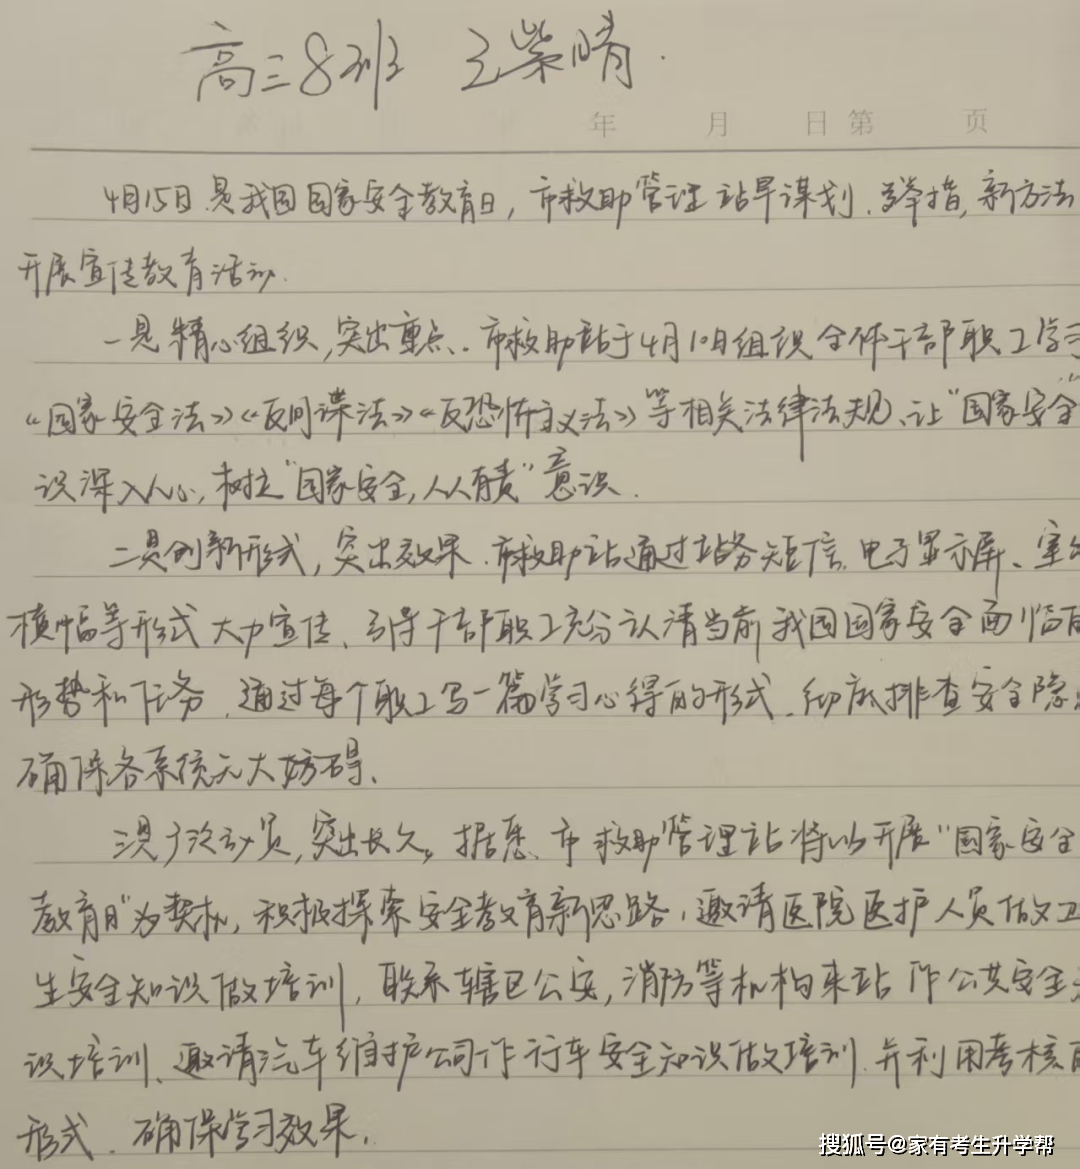 高三8班 王紫晴.
年 月 日第 页
4月15日是我国国家安全教育日，市救助管理站早谋划、举措，新方法
开展宣传教育活动.
一是精心组织，突出重点.市救助站于4月10日组织全体干部职工学习
《国家安全法》《反间谍法》《反恐怖主义法》等相关法律法规、让“国家安全”
识深入人心，树立“国家安全，人人有责”意识.
二是创新形式，突出效果.市救助站通过站务短信、电子显示屏、室外
横幅等形式大力宣传、引导干部职工充分认清当前我国国家安全面临的
形势和任务.通过每个职工写一篇学习心得的形式、彻底排查安全隐患
确保各系统无大妨碍、
三是广泛动员，突出长久。据悉、市救助管理站将以开展“国家安全
教育日”为契机，积极探索安全教育新思路，邀请医院医护人员做卫
生安全知识做培训，联系辖区公安，消防等机构来站作公共安全知
识培训、邀请汽车维护公司作行车安全知识做培训.并利用考核的
形式.确保学习效果，
搜狐号@家有考生升学帮